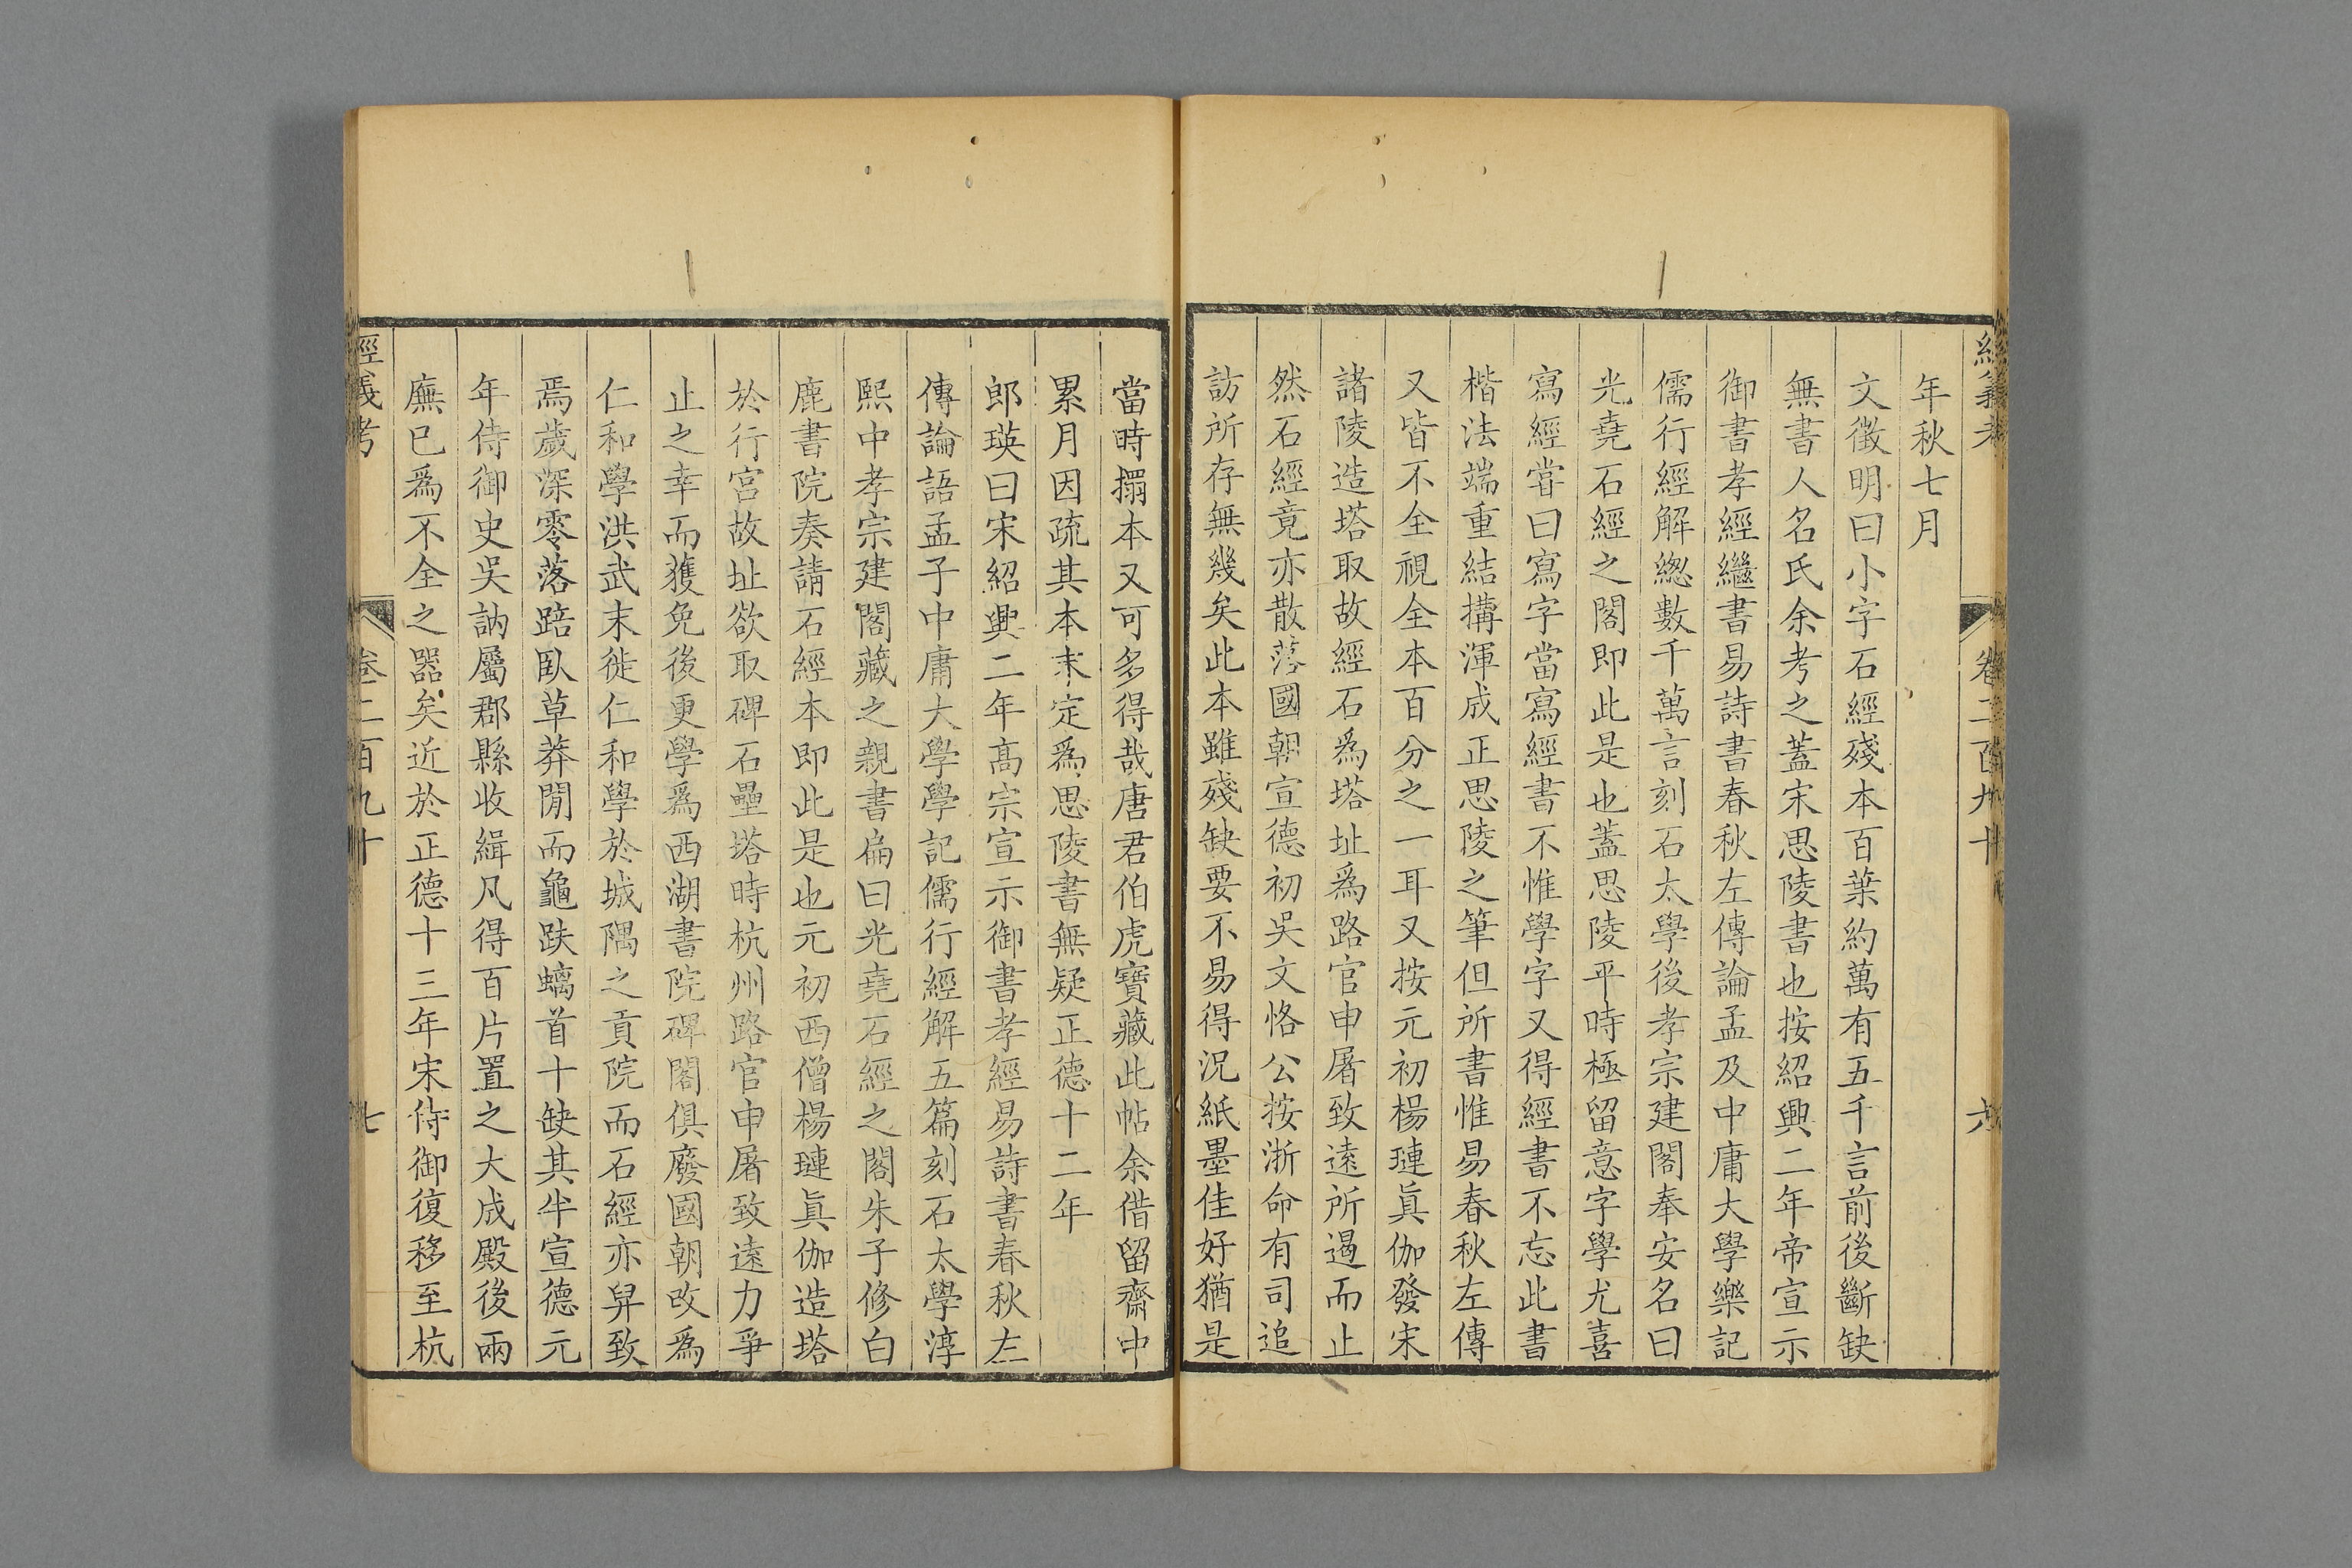 經義考
卷二百九十
六
年秋七月
文徵明曰小字石經殘本百葉約萬有五千言前後斷缺
無書人名氏余考之蓋宋思陵書也按紹興二年帝宣示
御書孝經繼書易詩書春秋左傳論孟及中庸大學樂記
儒行經解緫數千萬言刻石太學後孝宗建閣奉安名曰
光堯石經之閣即此是也蓋思陵平時極留意字學尤喜
寫經甞曰寫字當寫經書不惟學字又得經書不忘此書
楷法端重結搆渾成正思陵之筆但所書惟易春秋左傳
又皆不全視全本百分之一耳又按元初楊璉眞伽發宋
諸陵造塔取故經石爲塔址爲路官申屠致遠所遏而止
然石經竟亦散落國朝宣德初吳文恪公按浙命有司追
訪所存無幾矣此本雖殘缺要不易得況紙墨佳好猶是
當時搨本又可多得哉唐君伯虎寶藏此帖余借留齋中
累月因疏其本末定爲思陵書無疑正德十二年
郎瑛曰宋紹興二年高宗宣示御書孝經易詩書春秋左
傳論語孟子中庸大學學記儒行經解五篇刻石太學淳
熙中孝宗建閣藏之親書扁曰光堯石經之閣朱子修白
鹿書院奏請石經本即此是也元初西僧楊璉眞伽造塔
於行宮故址欲取碑石壘塔時杭州路官申屠致遠力爭
止之幸而獲免後更學爲西湖書院碑閣俱廢國朝改爲
仁和學洪武末徙仁和學於城隅之貢院而石經亦舁致
焉歲深零落踣臥草莽閒而龜趺螭首十缺其半宣德元
年侍御史吳訥屬郡縣收緝凡得百片置之大成殿後兩
廡已爲不全之器矣近於正德十三年宋侍御復移至杭
經義考
卷二百九十
七